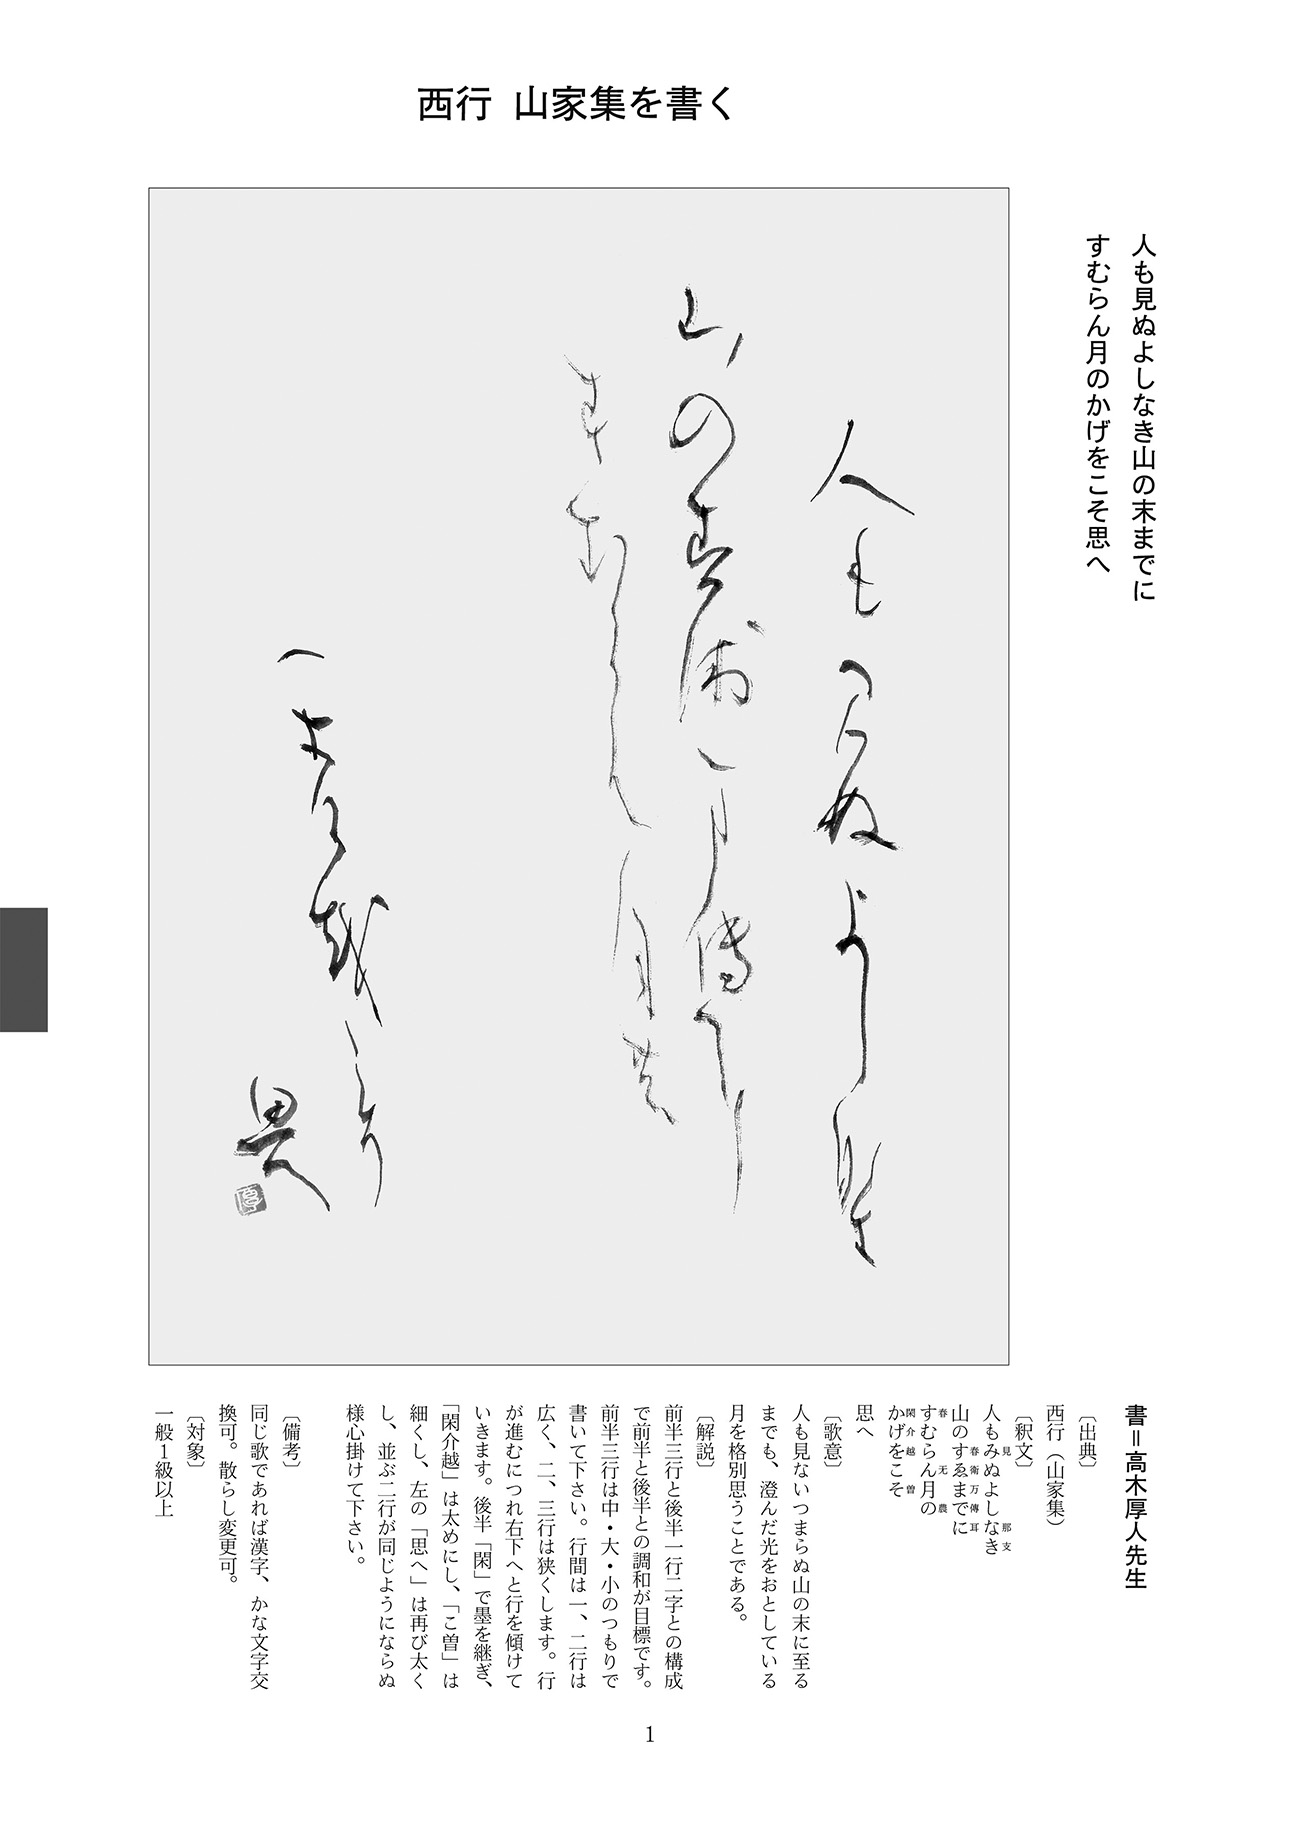 西行 山家集を書く
人も見ぬよしなき山の末までに
すむらん月のかげをこそ思へ
人も見ぬよし那支
山の春衛万傳耳
春むらん月農
閑介越こ曽
思へ
厚
書＝高木厚人先生
〔出典〕
西行（山家集）
〔釈文〕
見 那 支
人もみぬよしなき
春 衛 万 傳 耳
山のすゑまでに
春 无 農
すむらん月の
閑 介 越 曽
かげをこそ
思へ
〔歌意〕
人も見ないつまらぬ山の末に至る
までも、澄んだ光をおとしている
月を格別思うことである。
〔解説〕
前半三行と後半一行二字との構成
で前半と後半との調和が目標です。
前半三行は中・大・小のつもりで
書いて下さい。行間は一、二行は
広く、二、三行は狭くします。行
が進むにつれ右下へと行を傾けて
いきます。後半「閑」で墨を継ぎ、
「閑介越」は太めにし、「こ曽」は
細くし、左の「思へ」は再び太く
し、並ぶ二行が同じようにならぬ
様心掛けて下さい。
〔備考〕
同じ歌であれば漢字、かな文字交
換可。散らし変更可。
〔対象〕
一般１級以上
1